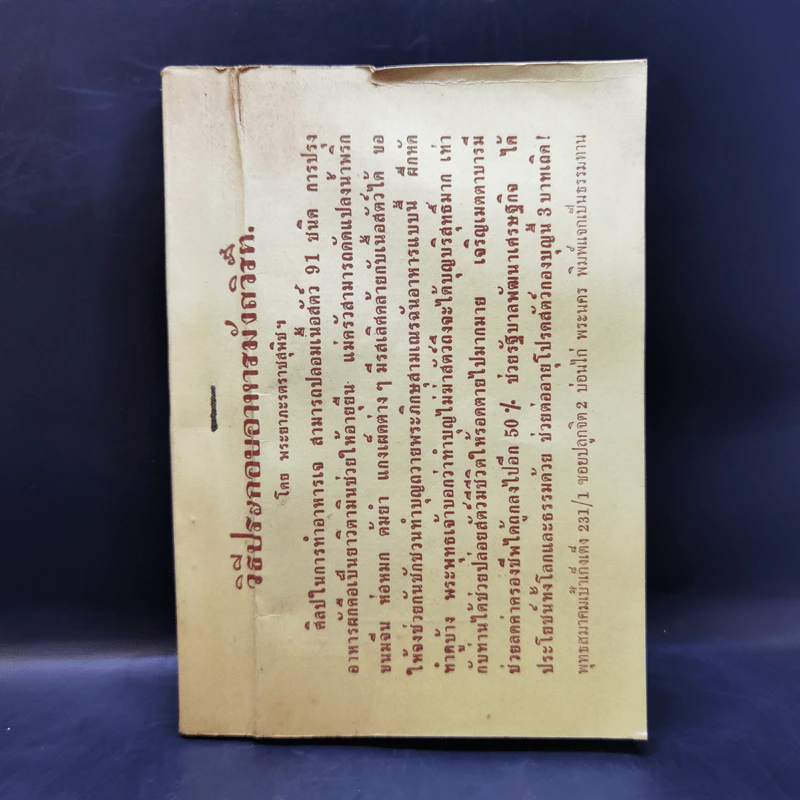 วิธีประกอบอาหารมังสวิรัท.
โดย พระยาภะรตราชสุพิชฯ
ศิลปในการทำอาหารเจ สามารถปลอมเนื้อสัตว์ 91 ชนิด การปรุง
อาหารผักคือเป็นยาวิตามินช่วยให้อายุยืน แม่ครัวสามารถดัดแปลงน้ำพริก
ขนมจีน ห่อหมก ต้มยำ แกงเผ็ดต่าง ๆ มีรสเลิศคล้ายกับเนื้อสัตว์ได้ ขอ
ให้จงช่วยกันชักชวนทำบุญถวายพระภิกษุสามเณรฉันอาหารแบบนี้ ฝึกหัด
ทำดูบ้าง พระพุทธเจ้าบอกว่าทำบุญไม่ฆ่าสัตว์ถึงจะได้บุญบริสุทธิ์มาก เท่า
กับท่านได้ช่วยปล่อยสัตว์มีชีวิตให้รอดตายไปมากมาย เจริญเมตตาบารมี
ช่วยลดค่าครองชีพได้ถูกลงไปอีก 50 % ช่วยรัฐบาลพัฒนาเศรษฐกิจ ได้
ประโยชน์ทั้งโลกและธรรมด้วย ช่วยต่ออายุโปรดสัตว์กองบุญนี้ 3 บาทเถิด!
พุทธสมาคมเบ้าเก็งเต็ง 231/1 ซอยปลูกจิต 2 บ่อนไก่ พระนคร พิมพ์แจกเป็นธรรมทาน